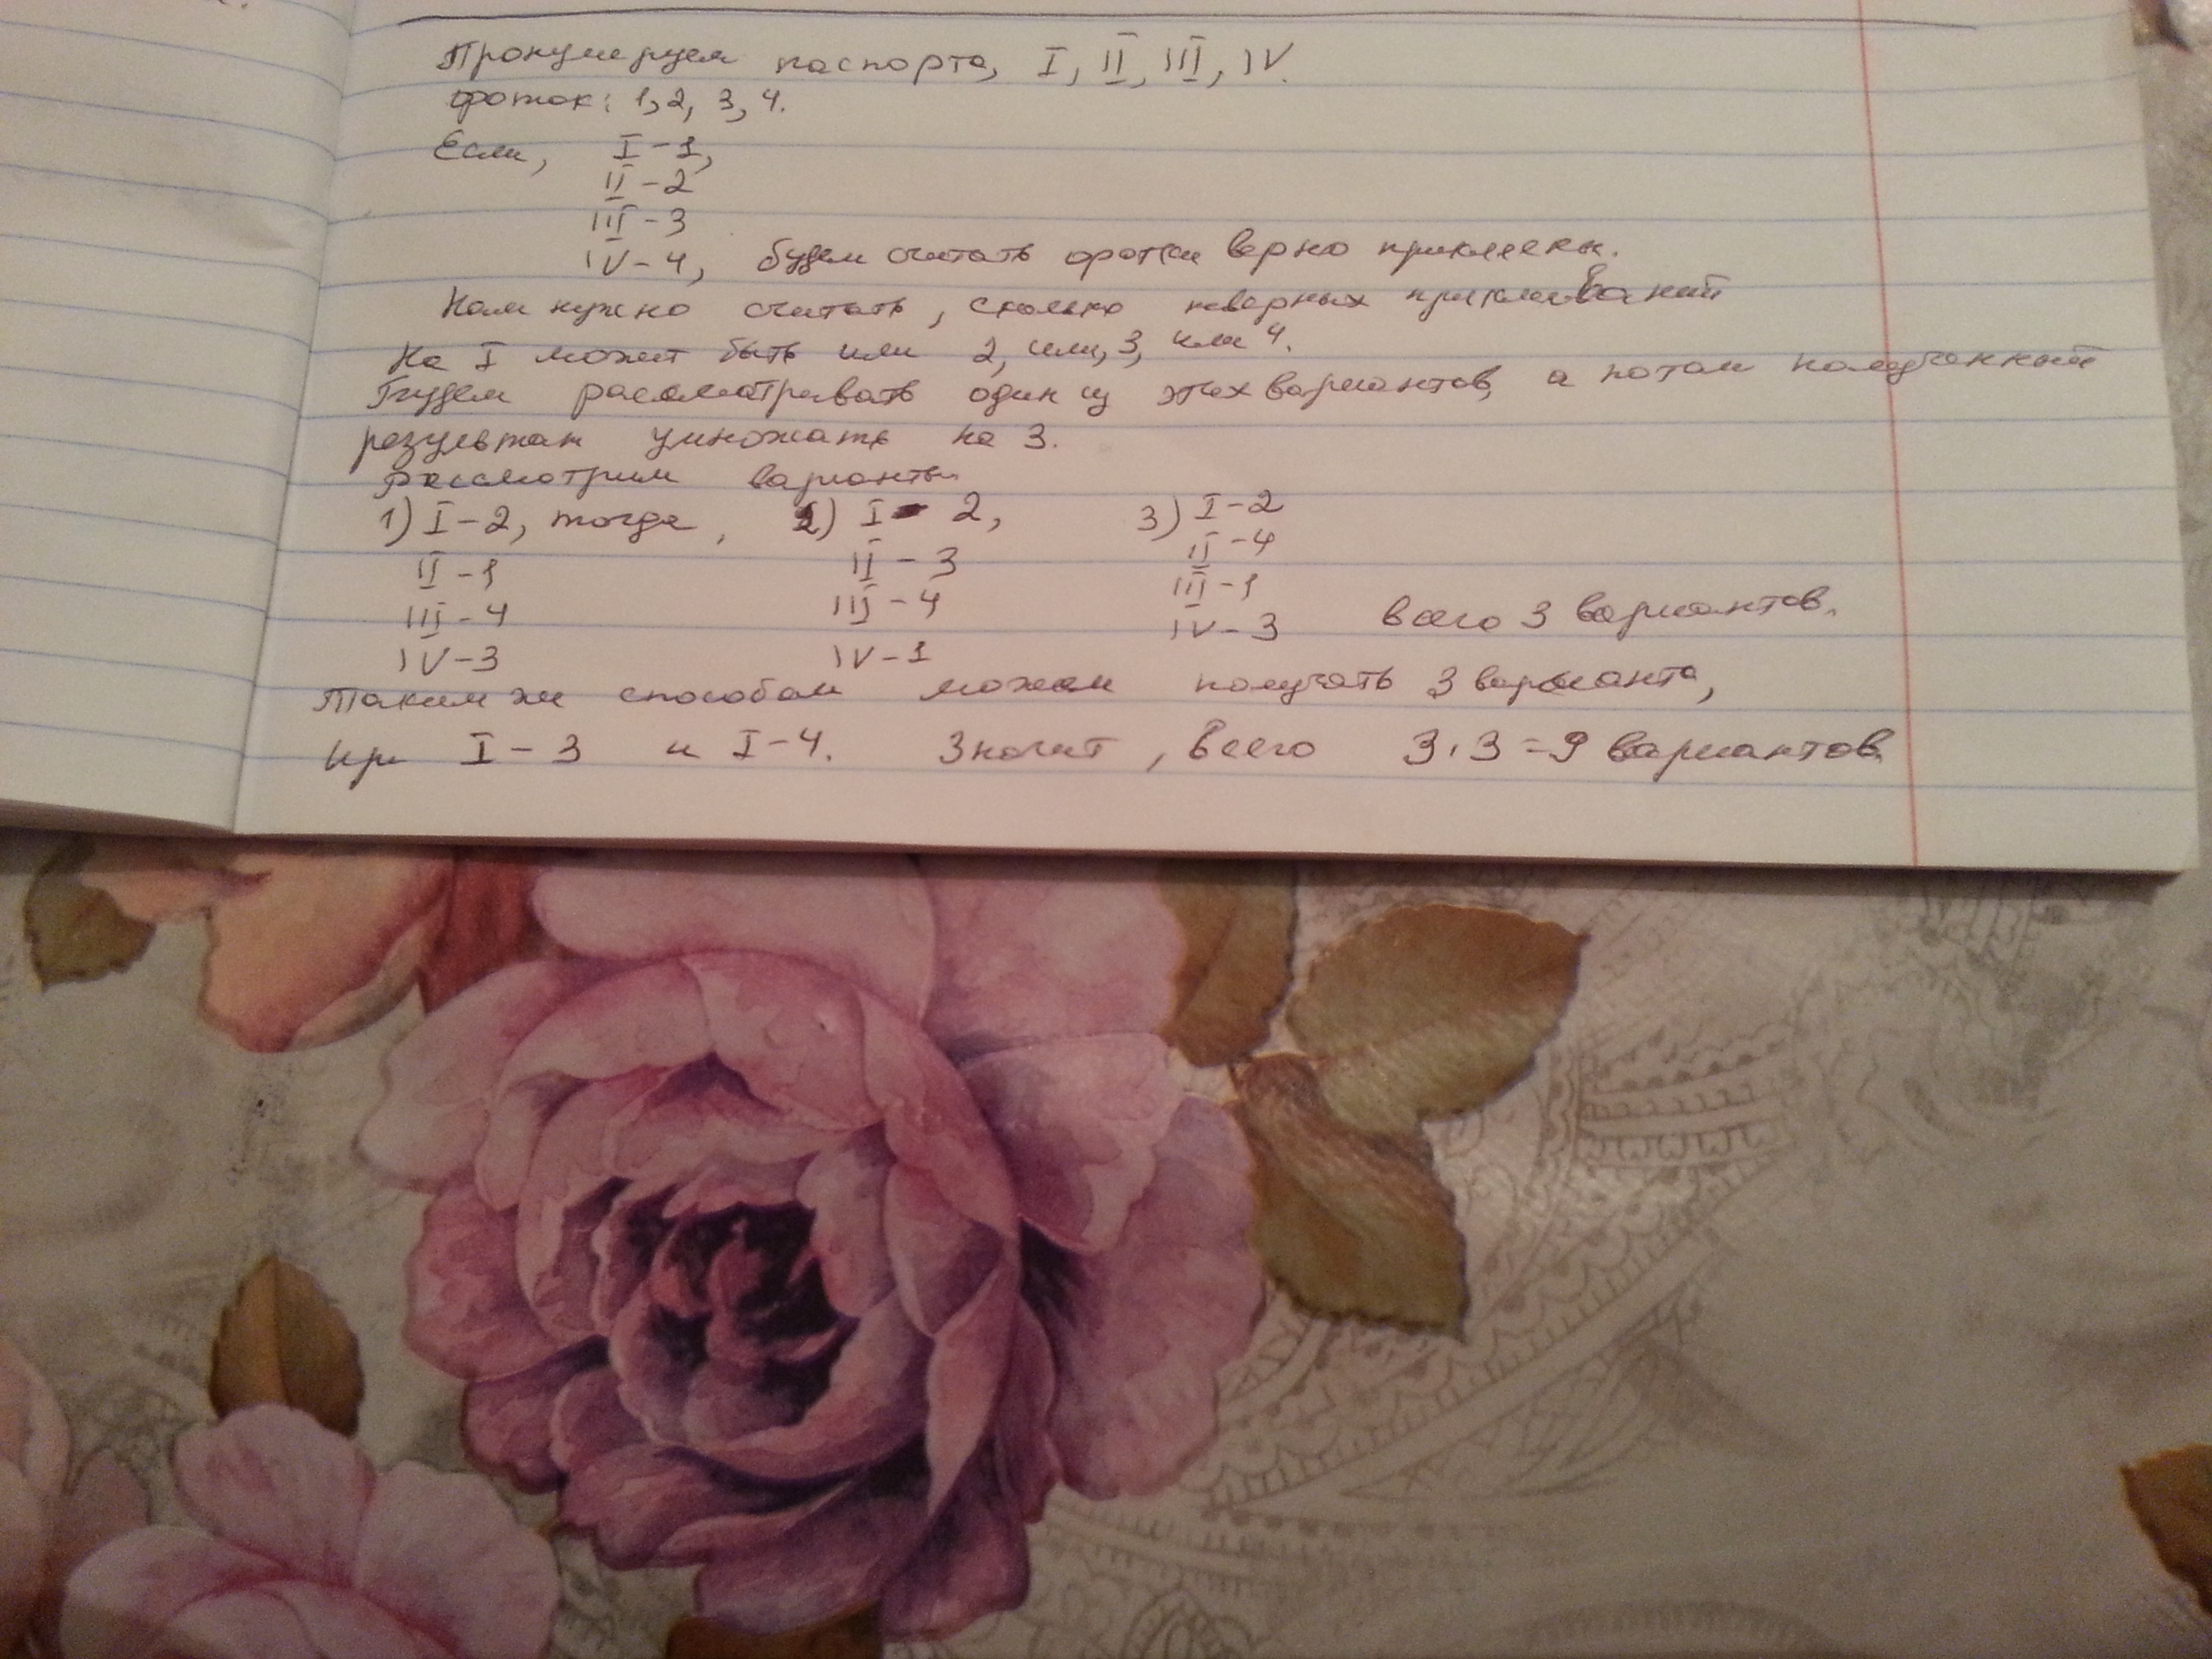 Пронумеруем паспорта, I, II, III, IV.
фоток: 1, 2, 3, 4.
Если, I - 1,
II - 2
III - 3
IV - 4, будем считать фотки верно приклеены.
Нам нужно считать, сколько неверных приклеваний
На I может быть или 2, или, 3, или 4.
Будем рассматривать один из этих вариантов, а потом полученный
результат умножать на 3.
Рассмотрим варианты
1) I - 2, тогда, 2) I - 2, 3) I - 2
II - 1 II - 3 II - 4
III - 4 III - 4 III - 1
IV - 3 IV - 1 IV - 3 всего 3 вариантов.
Таким же способом можем получать 3 варианта,
при I - 3 и I - 4. Значит, всего 3 · 3 = 9 вариантов